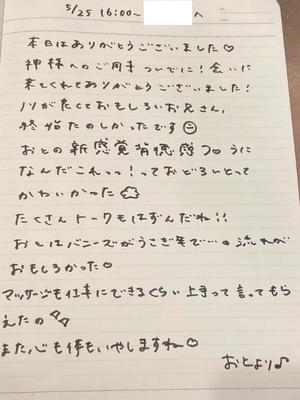 5/25 16:00~ へ
本日はありがとうございました♡
神様へのご用事ついでに!会いに
来てくれてありがとうございました!
ノリが良くておもしろいお兄さん、
終始たのしかったです☺
おとの新感覚背徳感フロうに
なんだこれっっ!っておどろいとって
かわいかった
たくさんトークもはずんだね!!
おとはバニーズがうさぎ年で…。流れが
おもしろかった♡
マッサージも仕事にできるくらい上手って言ってもら
えたの
また、心も体もいやしますね♡
おとより♪